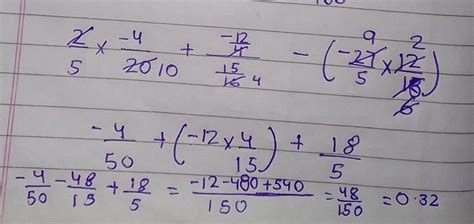 2/5 × -4/20 10 + (-12/4)/(15/16 4) - (-27 9/5 × 12 2/15 5)
-4/50 + (-12 × 4/15) + 18/5
-4/50 - 48/15 + 18/5 = (-12 - 480 + 540)/150 = 48/150 = 0.32